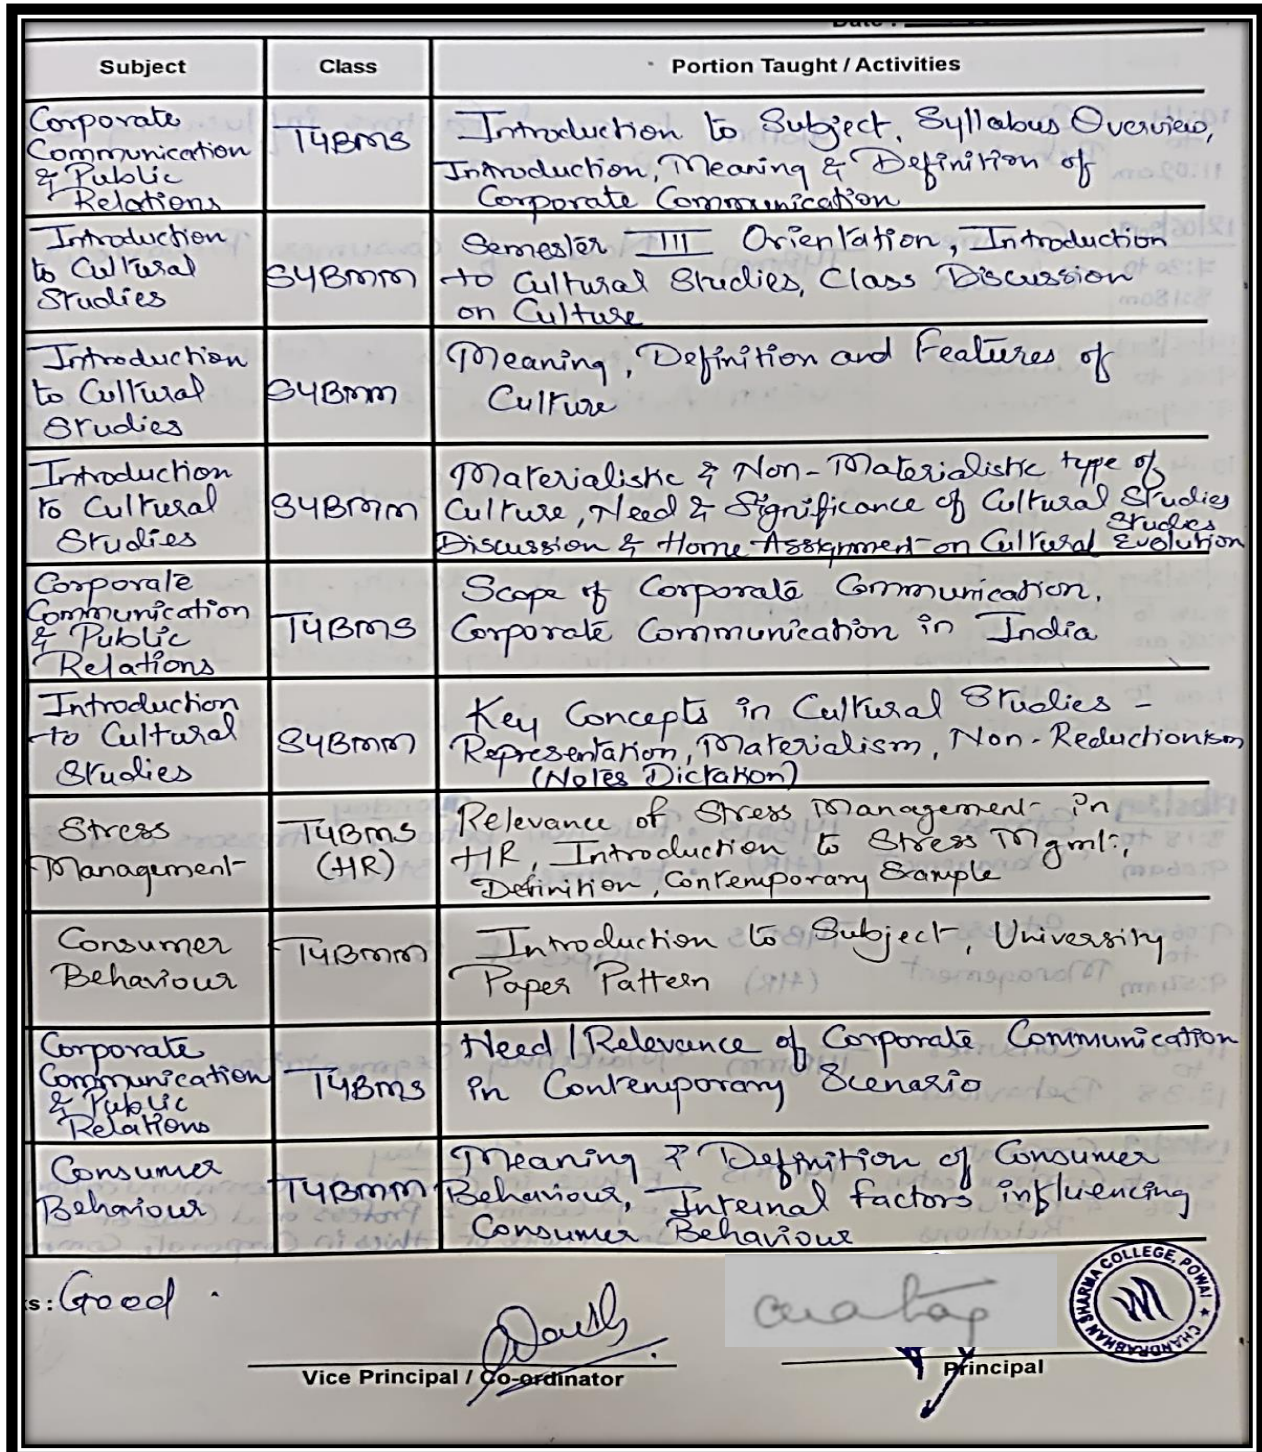 Date :
Subject Class Portion Taught / Activities
Corporate
Communication
& Public
Relations
TYBMS
Introduction to Subject, Syllabus Overview,
Introduction, Meaning & Definition of
Corporate Communication
Introduction
to Cultural
Studies
SYBMM
Semester III Orientation, Introduction
to Cultural Studies, Class Discussion
on Culture
Introduction
to Cultural
Studies
SYBMM
Meaning, Definition and Features of
Culture
Introduction
to Cultural
Studies
SYBMM
Materialistic & Non-Materialistic type of
Culture, Need & Significance of Cultural Studies
Studies
Discussion & Home-Assignment on Cultural Evolution
Corporate
Communication
& Public
Relations
TYBMS
Scope of Corporate Communication,
Corporate Communication in India
Introduction
to Cultural
Studies
SYBMM
Key Concepts in Cultural Studies -
Representation, Materialism, Non-Reductionism
(Notes Dictation)
Stress
Management
TYBMS
(HR)
Relevance of Stress Management in
HR, Introduction to Stress Mgmt.,
Definition, Contemporary Example
Consumer
Behaviour
TYBMM
Introduction to Subject, University
Paper Pattern
Corporate
Communication
& Public
Relations
TYBMS
Need / Relevance of Corporate Communication
in Contemporary Scenario
Consumer
Behaviour
TYBMM
Meaning & Definition of Consumer
Behaviour, Internal factors influencing
Consumer Behaviour
s : Good
Vice Principal / Co-ordinator
Principal
CHANDRABHAN SHARMA COLLEGE, POWAI